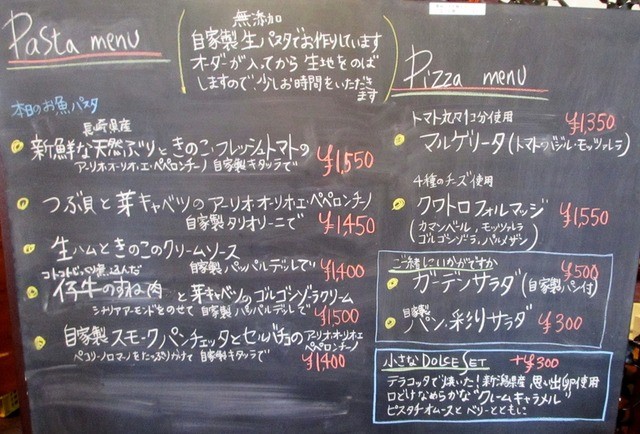 Pasta menu
無添加
自家製生パスタでお作りしています
オーダが入ってから生地をのば
しますので、少しお時間をいただき
ます
本日のお魚パスタ
長崎県産
新鮮な天然ぶりときのこ・フレッシュトマトの
アーリオ・オーリオ・エ・ペペロンチーノ 自家製キタッラで ¥1,550
つぶ貝と芽キャベツのアーリオ・オーリオ・エ・ペペロンチーノ
自家製タリオリーニで ¥1450
生ハムときのこのクリームソース
自家製パッパルデッレで ¥1,400
コトコトじっくり煮込んだ
仔牛のすね肉と芽キャベツのゴルゴンゾーラクリーム
シナリアアモンドをのせて 自家製パッパルデッレで ¥1,500
自家製スモークパンチェッタとセルバチコのアーリオ・オーリオ・エ
ペペロンチーノ
ペコリーノロマーノをたっぷりかけて 自家製キタッラで ¥1400
Pizza menu
トマト丸々1コ分使用 ¥1,350
マルゲリータ(トマト・バジル・モッツァレラ)
4種のチーズ使用
クワトロフォルマッジ ¥1,550
(カマンベール、モッツァレラ
ゴルゴンゾーラ、パルメザン)
ご一緒にいかがですか ¥500
ガーデンサラダ(自家製パン付)
自家製
パン・彩りサラダ ¥300
小さなDOLSE SET +¥300
テラコッタで焼いた!新潟県産 思い出し卵使用
口どけなめらかな"クレームキャラメル"
ピスタチオムースとベリーとともに